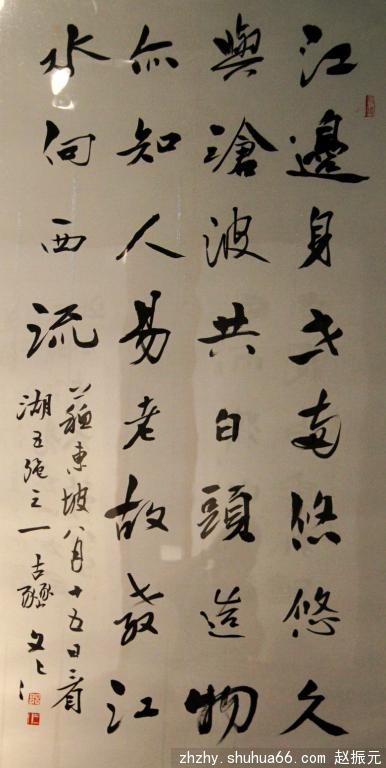 江邊身世兩悠悠久
與滄波共白頭造物
亦知人易老故教江
水向西流
蘇東坡八月十五日看
湖五絕之一 古
zhzhy.shuhua66.com 赵振元